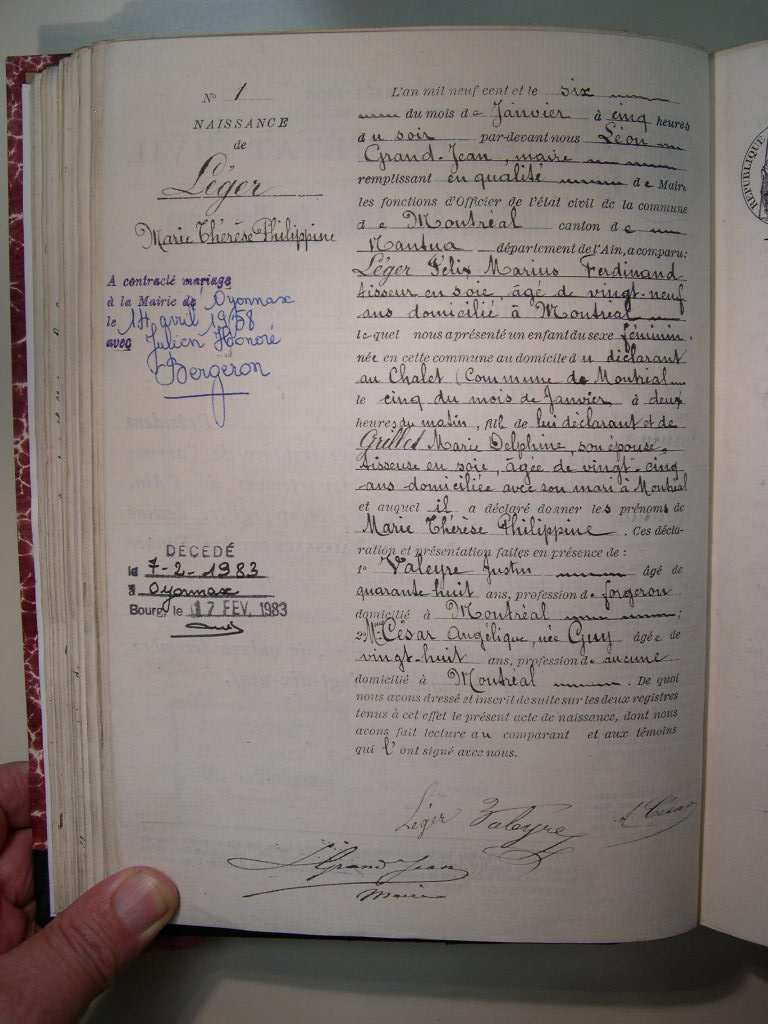 N° 1
NAISSANCE
de
Léger
Marie Thérèse Philippine
A contracté mariage
à la Mairie de Oyonnax
le 14 avril 1958
avec Julien Honoré
Bergeron
DÉCÉDÉ
le 7-2-1983
à Oyonnax
Bourg, le 17 FEV. 1983
L'an mil neuf cent et le six
du mois de Janvier à cinq heures
du soir par-devant nous Léon
Grand-Jean, maire
remplissant en qualité de Maire
les fonctions d'Officier de l'état civil de la commune
de Montréal canton de
Nantua département de l'Ain, a comparu:
Léger Félix Marius Ferdinand
tisseur en soie, âgé de vingt-neuf
ans domicilié à Montréal
lequel nous a présenté un enfant du sexe féminin.
née en cette commune au domicile du déclarant
au Chalet (Commune de Montréal
le cinq du mois de Janvier à deux
heures du matin, fille de lui déclarant et de
Grillet Marie Delphine, son épouse,
tisseuse en soie, âgée de vingt-cinq
ans domiciliée avec son mari à Montréal
et auquel il a déclaré donner les prénoms de
Marie Thérèse Philippine. Ces décla-
ration et présentation faites en présence de :
1° Valeyre Justin âgé de
quarante huit ans, profession de forgeron
domicilié à Montréal ;
2° Mme César Angélique, née Guy âgée de
vingt-huit ans, profession de aucune
domicilié à Montréal. De quoi
nous avons dressé et inscrit de suite sur les deux registres
tenus à cet effet le présent acte de naissance, dont nous
avons fait lecture au comparant et aux témoins
qui l'ont signé avec nous.
Léger Valeyre A César
L Grand Jean
Maire
RÉPUBLIQUE